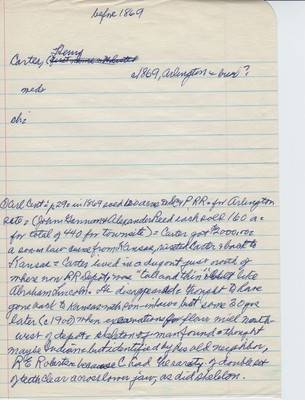 before 1869
Henry
Carter, (first name not listed
a 1869, Arlington & bur ?
md:
ch:
Earl Cent: p.29: in 1869 sold 120 acres to UPRR for Arlington
site: (John Gannon & Alexander Reed each sold 160 a =
for total of 440 for townsite) = Carter got $2,000.00:
a son in law came from Kansas, visited Carter & back to
Kansas = Carter lived in a dugout just north of
where now RR Depot, was "tall and thin" built like
Abraham Lincoln. He disappeared & thought to have
gone back to Kansas with son-in-law but some 30 yrs
later (c 1900) when excavations for flour mill north-
west of depot skeleton of man found & thought
maybe Indian but identified by his old neighbor,
R E Roberts because C had the rarity of double set
of teeth clear across lower jaw, as did skeleton.